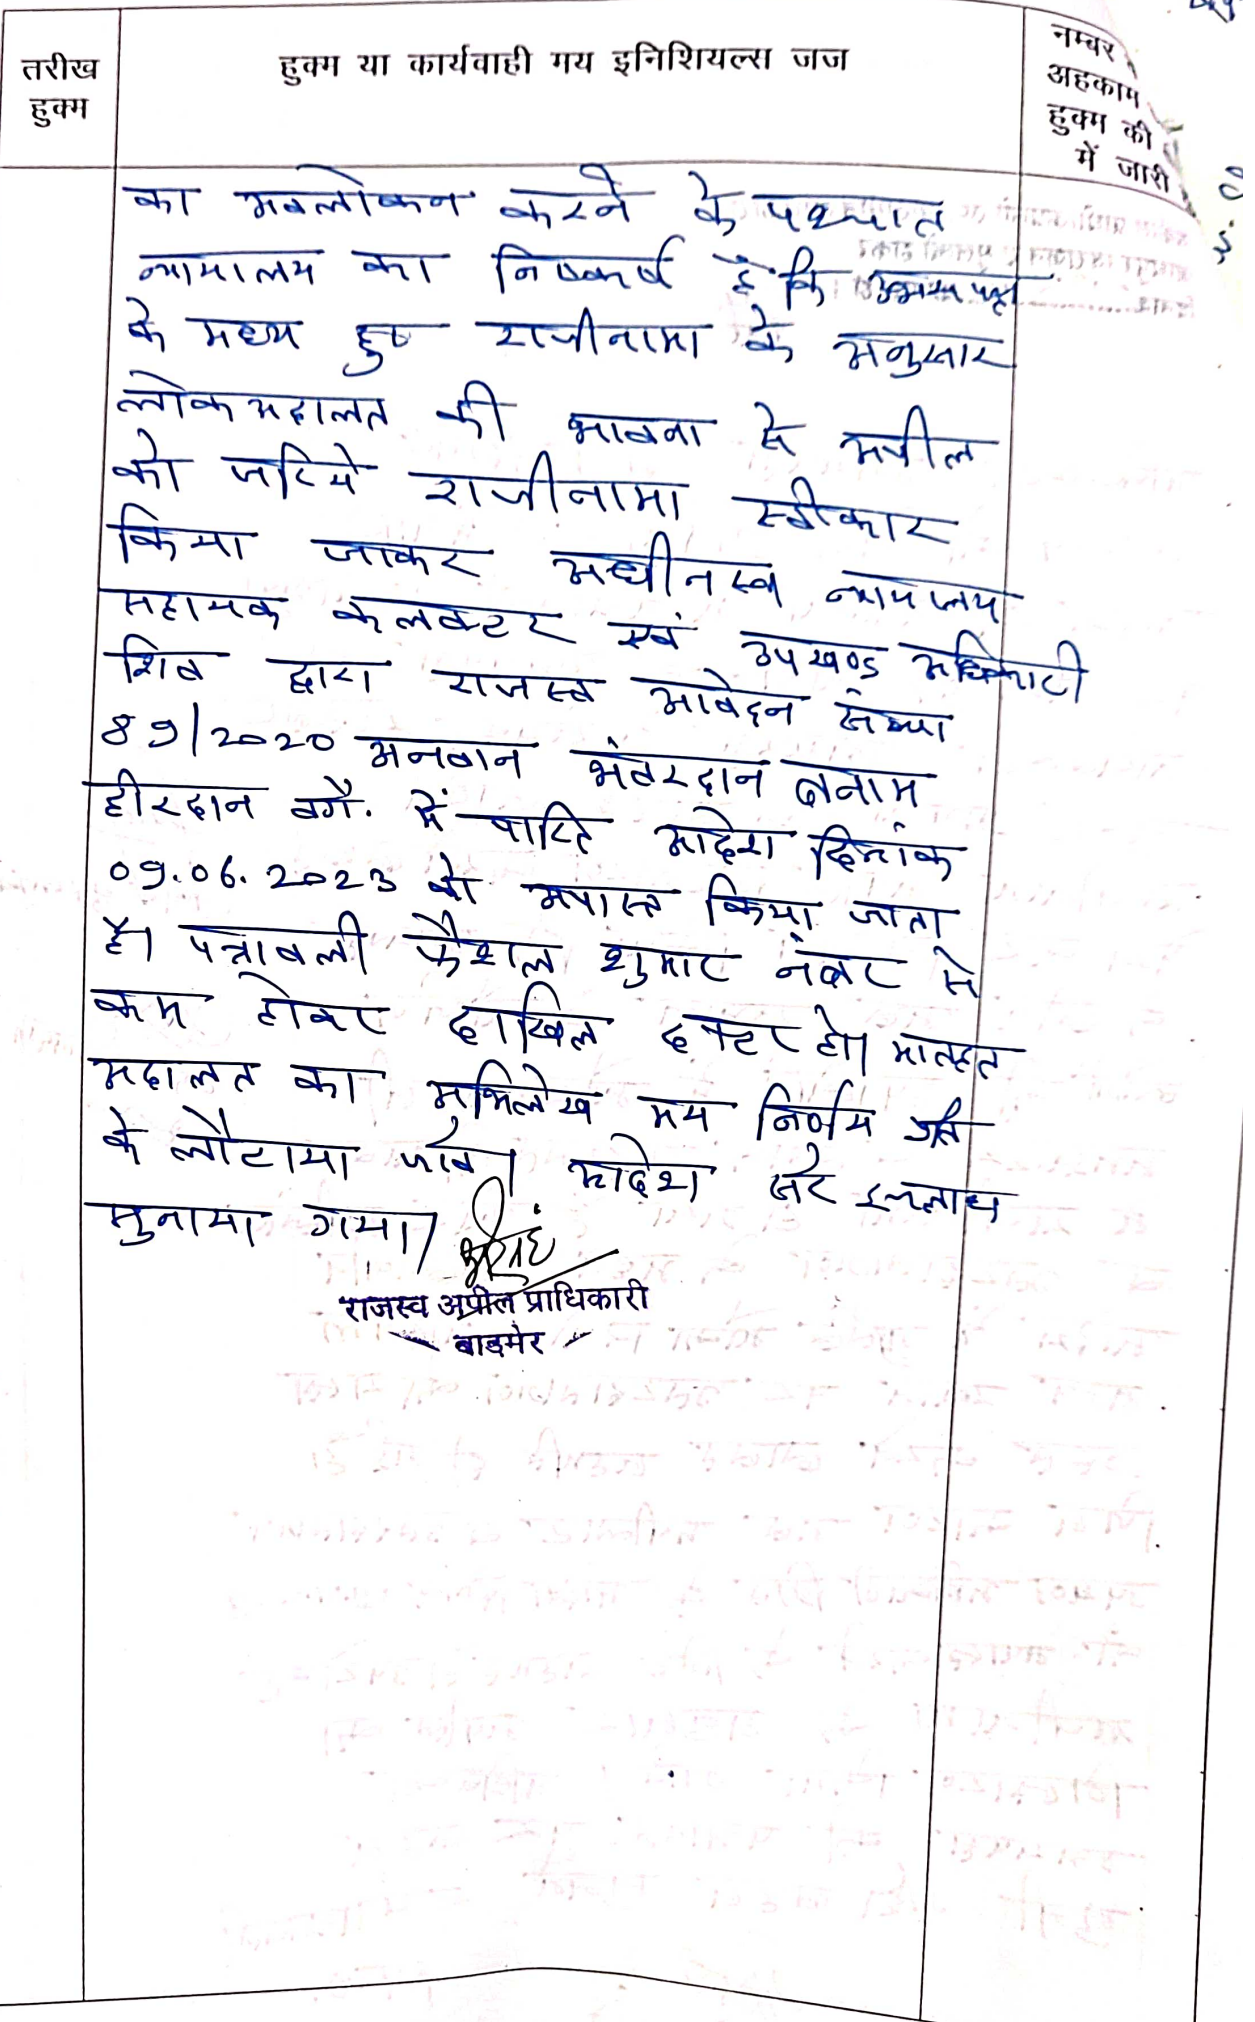 तरीख
हुक्म
हुक्म या कार्यवाही मय इनिशियल्स जज
नम्बर
अहकाम
हुक्म की
में जारी
का अवलोकन करने के पश्चात
न्यायालय का निष्कर्ष है कि उभय पक्ष
के मध्य हुए राजीनामा के अनुसार
लोक अदालत की भावना से अपील
को जरिये राजीनामा स्वीकार
किया जाकर अधीनस्थ न्यायालय
सहायक कलक्टर एवं उपखण्ड अधिकारी
शिव द्वारा राजस्व आवेदन संख्या
89/2020 अनवान भंवरदान बनाम
हीरदान वगै. में पारित आदेश दिनांक
09.06.2023 को अपास्त किया जाता
है। पत्रावली फैशल शुमार नंबर से
कम होकर दाखिल दफ्तर हो। मातहत
अदालत का अभिलेख मय निर्णय प्रति
के लौटाया जावे। आदेश सरे इजलाश
सुनाया गया।
राजस्व अपील प्राधिकारी
बाडमेर